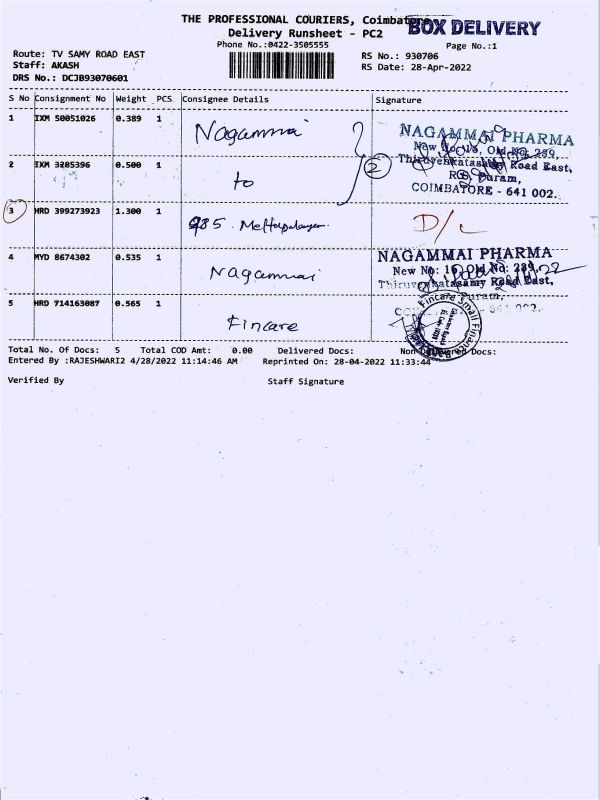 THE PROFESSIONAL COURIERS, Coimbatore
BOX DELIVERY
Delivery Runsheet - PC2
Phone No.:0422-3505555
Page No.:1
Route: TV SAMY ROAD EAST
RS No.: 930706
Staff: AKASH
RS Date: 28-Apr-2022
DRS No.: DCJB93070601
S No Consignment No Weight PCS Consignee Details Signature
1 IXM 50051026 0.389 1 Nagammai
NAGAMMAI PHARMA
New No: 16, Old No: 239,
Thiruvenkatasamy Road East,
R.S. Puram,
COIMBATORE - 641 002.
2 IXM 3285396 0.500 1 to
2
3 HRD 399273923 1.300 1 985. Mettupalayam D/L
4 MYD 8674302 0.535 1 Nagammai
NAGAMMAI PHARMA
New No: 16, Old No: 239,
Thiruvenkatasamy Road East,
Puram,
641 002.
5 HRD 714163087 0.565 1 Fincare
Fincare Small Finance
Total No. Of Docs: 5 Total COD Amt: 0.00 Delivered Docs: Non Delivered Docs:
Entered By :RAJESHWARI2 4/28/2022 11:14:46 AM Reprinted On: 28-04-2022 11:33:44
Verified By Staff Signature